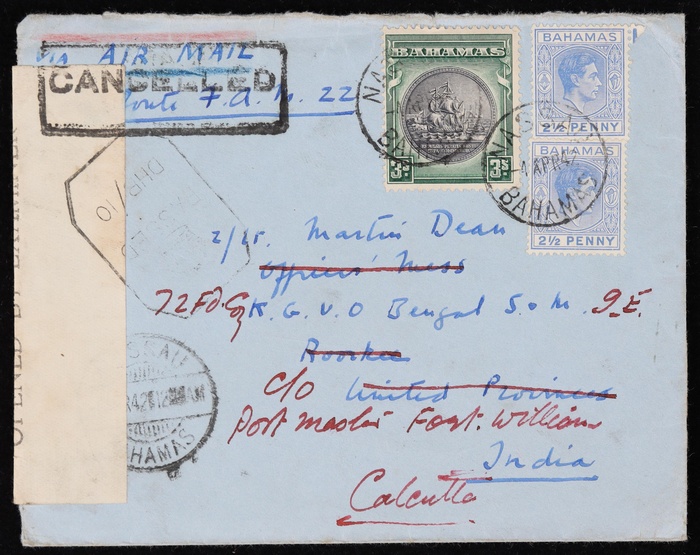 via AIR MAIL
CANCELLED
route F.A.M. 22
BAHAMAS
3s
3s
BAHAMAS
2½ PENNY
BAHAMAS
2½ PENNY
NASSAU
4 APR 42
BAHAMAS
DHP/10
PASSED
OPENED BY EXAMINER
2/Lt. Martin Dean
Officers' Mess
72 Fd. Coy K. G. V. O Bengal S. & M. I.E.
Roorkee
C/o United Provinces
Post master Fort. William
India
Calcutta
NASSAU
BAHAMAS